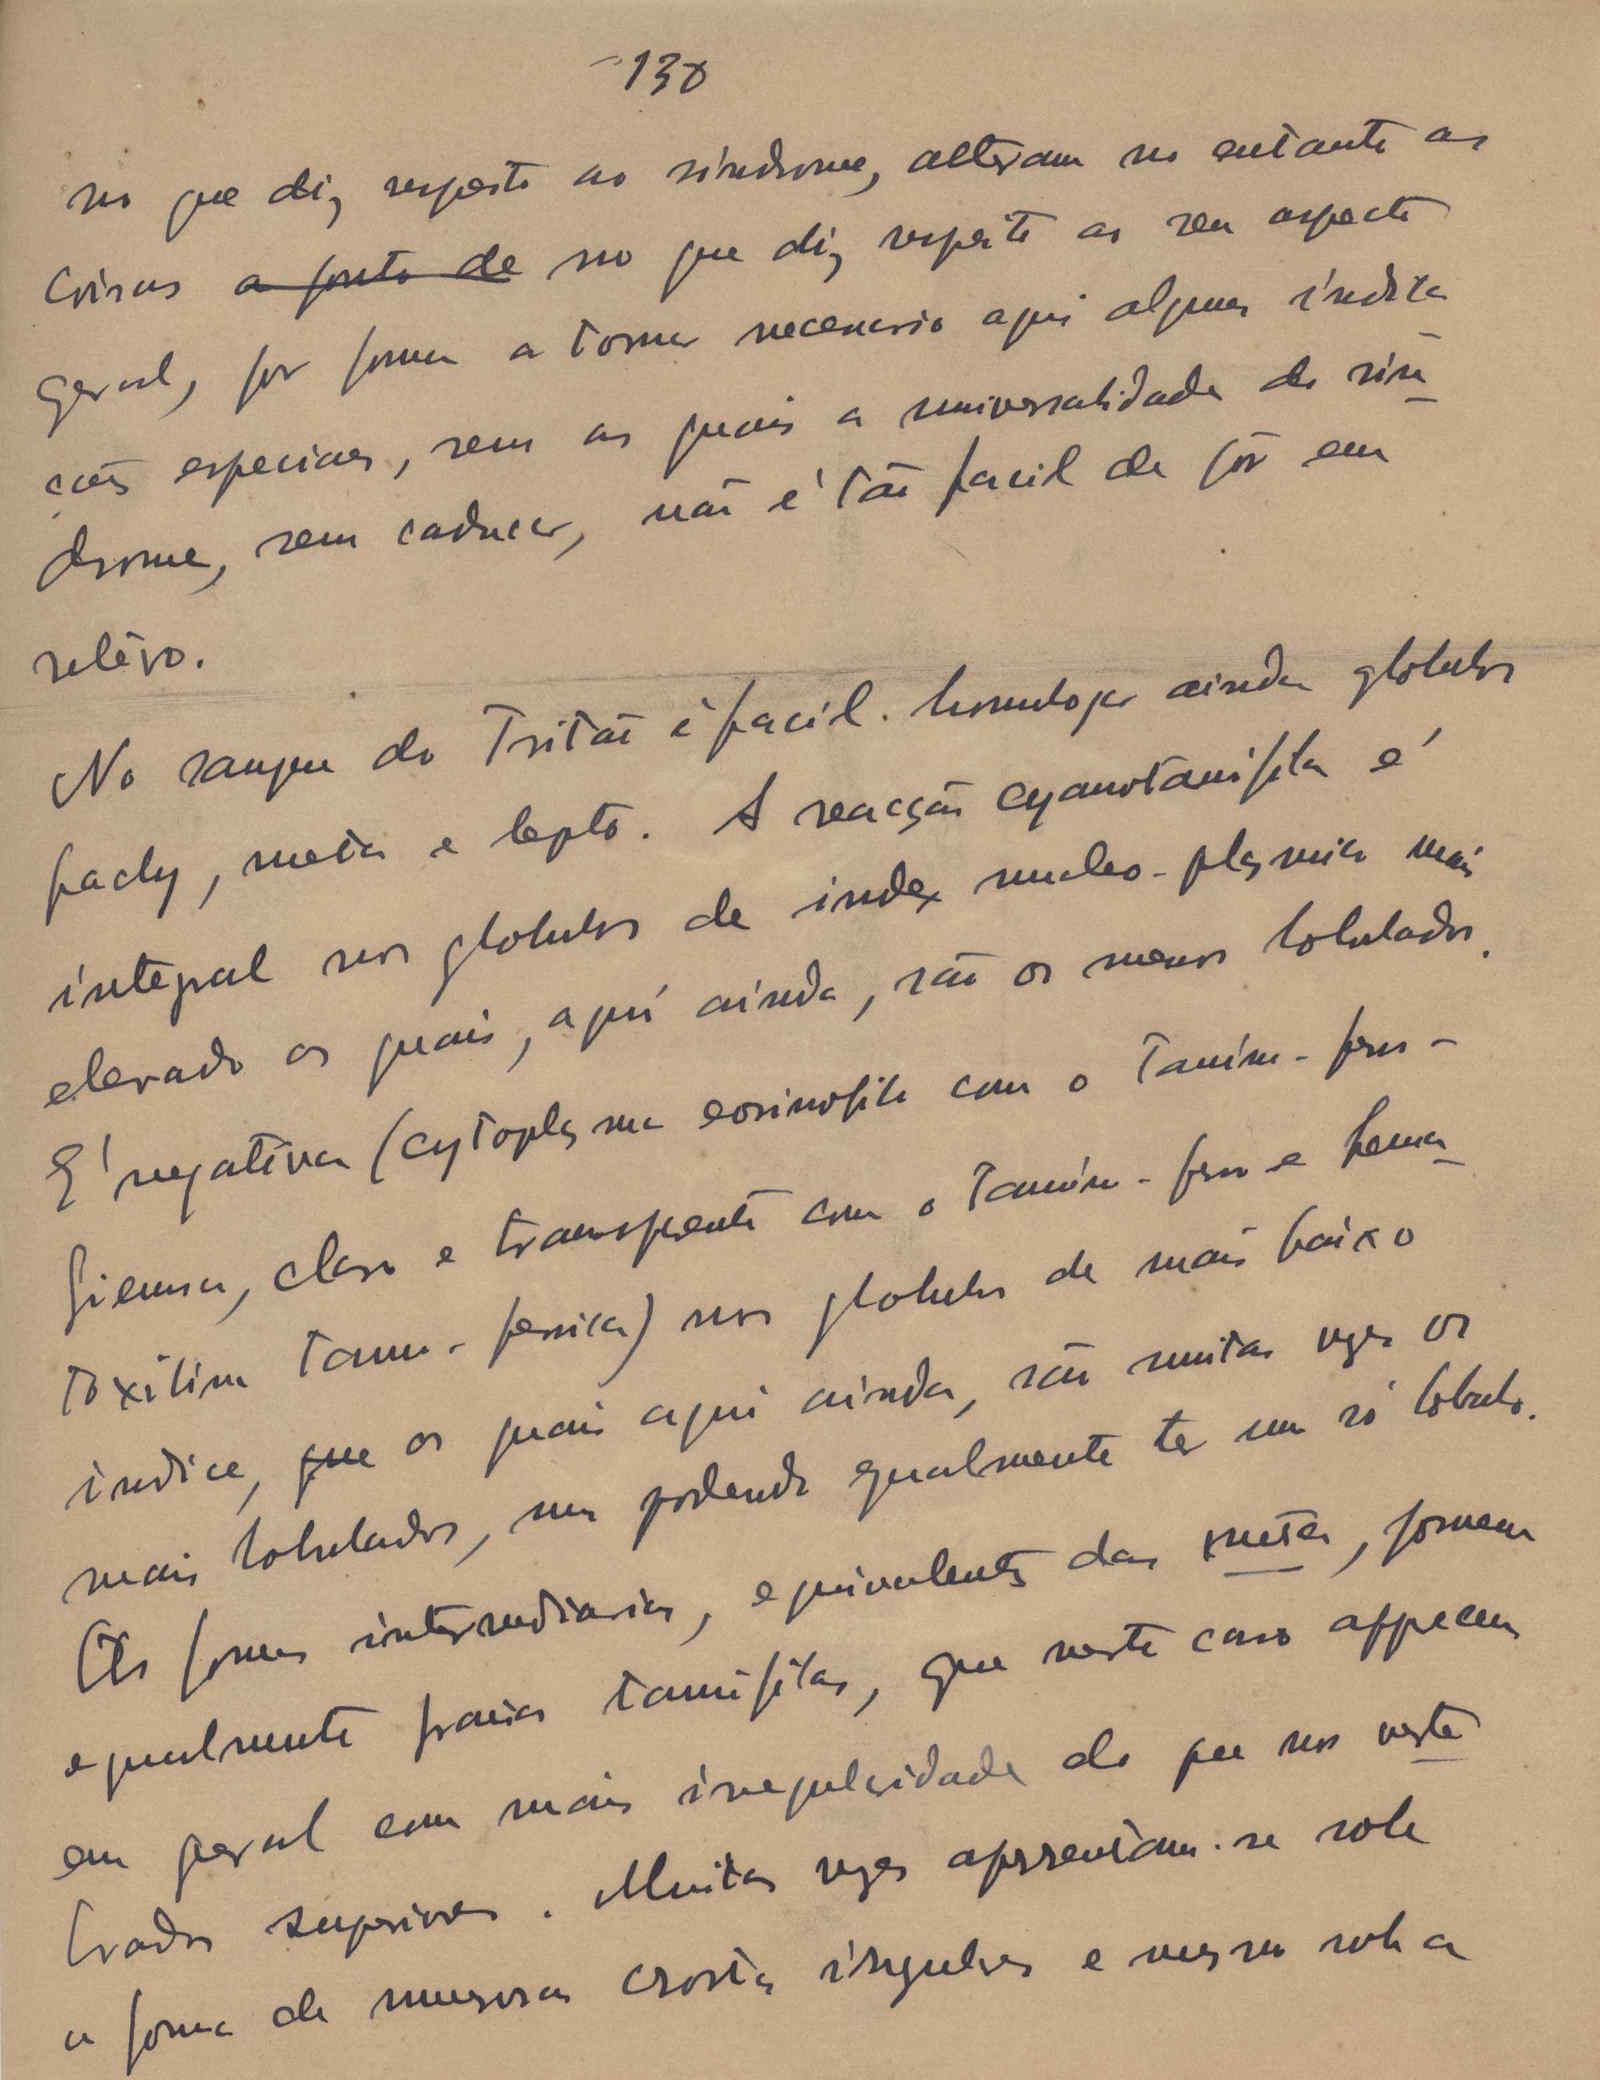 130
no que diz respeito ao síndrome, alteram no entanto as
coisas a ponto de no que diz respeito ao seu aspecto
geral, por forma a tornar necessario aqui algumas indica
ções especiaes, sem as quais a universalidade do sín
drome, sem caducar, não é tão facil de pôr em
relêvo.
No sangue do Tritão é facil homologar ainda globulos
pachy, meta e lepto. A reacção cyanotanifila é
integral nos globulos de index nucleo-plasmico mais
elevado os quais, aquí ainda, são os menos lobulados.
E' negativa (cytoplasma eosinofilo com o Tanino-ferro-
Giemsa, claro e transparente com o Tanino-ferro e hema
toxilina tanno-ferrica) nos globulos de mais baixo
indice, que os quais aqui ainda, são muitas vezes os
mais lobulados, mas podendo egualmente ter um só lobulo.
As formas intermediarias, equivalentes das meta, formam
egualmente franjas tanifilas, que neste caso apparecem
em geral com mais irregularidade do que nos verte
brados superiores. Muitas vezes apresentam-se sob
a forma de numerosas crostas irregulares e mesmo sob a